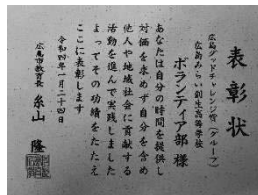 表彰状
広島グッドチャレンジ賞（グループ）
広島みらい創生高等学校
ボランティア部 様
あなたは自分の時間を提供し
対価を求めず自分を含め
他人や地域社会に貢献する
活動を進んで実践しました
よってその功績をたたえ
ここに表彰します
令和四年一月二十四日
広島市教育長 糸山 隆